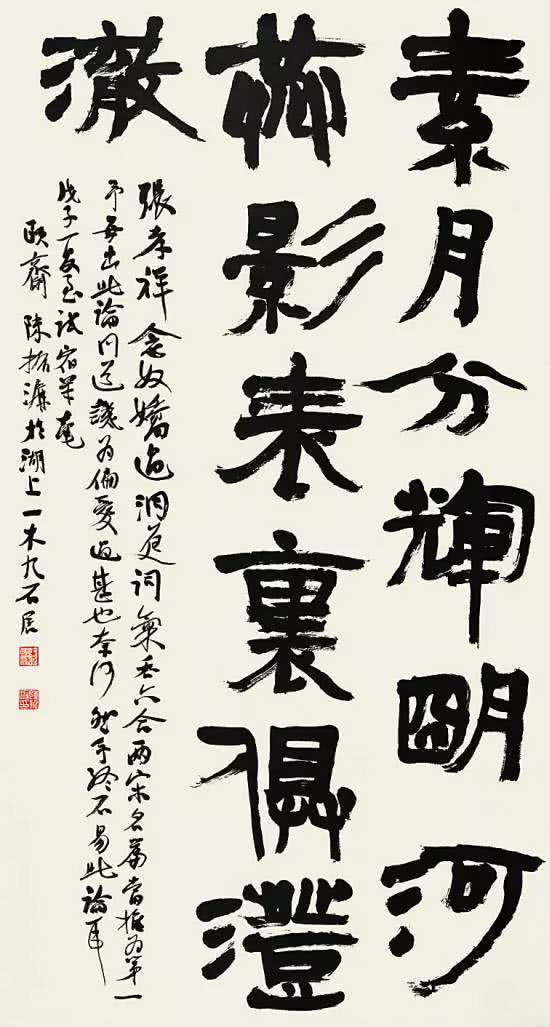 素月分輝朙河
共影表裏俱澄
澈
張孝祥念奴嬌過洞庭詞氣吞六合兩宋名篇當推為第一
予每出此論門道譏為偏愛過甚也奈何然予終不易此論耳
戊子試宿羊毫
頤齋陳振濂於湖上一木九石居